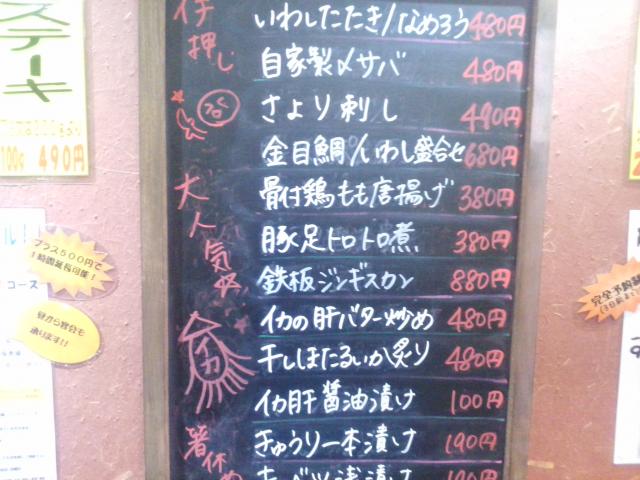 イチ押し
いわしたたき/なめろう 480円
自家製〆サバ 480円
さより刺し 490円
金目鯛/いわし盛合せ 680円
大人気
骨付鶏もも唐揚げ 380円
豚足トロトロ煮 380円
鉄板ジンギスカン 880円
イカの肝バター炒め 480円
干しほたるいか炙り 480円
イカ肝醤油漬け 100円
きゅうり一本漬け 190円
キャベツ浅漬け 190円
箸休め
イカ
ステーキ
100g 490円
プラス500円で
1時間延長可能!
昼から宴会も
承ります!!
コース
完全予約制